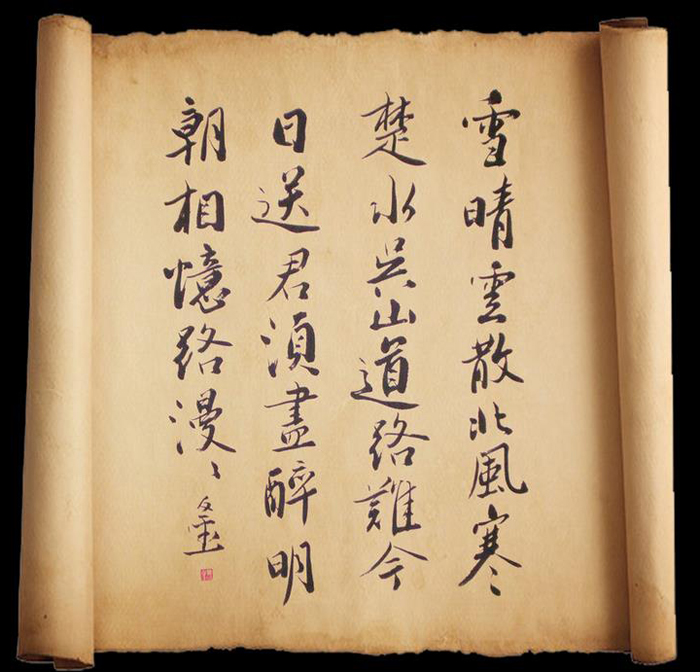 雪晴雲散北風寒
楚水吳山道路難今
日送君須盡醉明
朝相憶路漫々